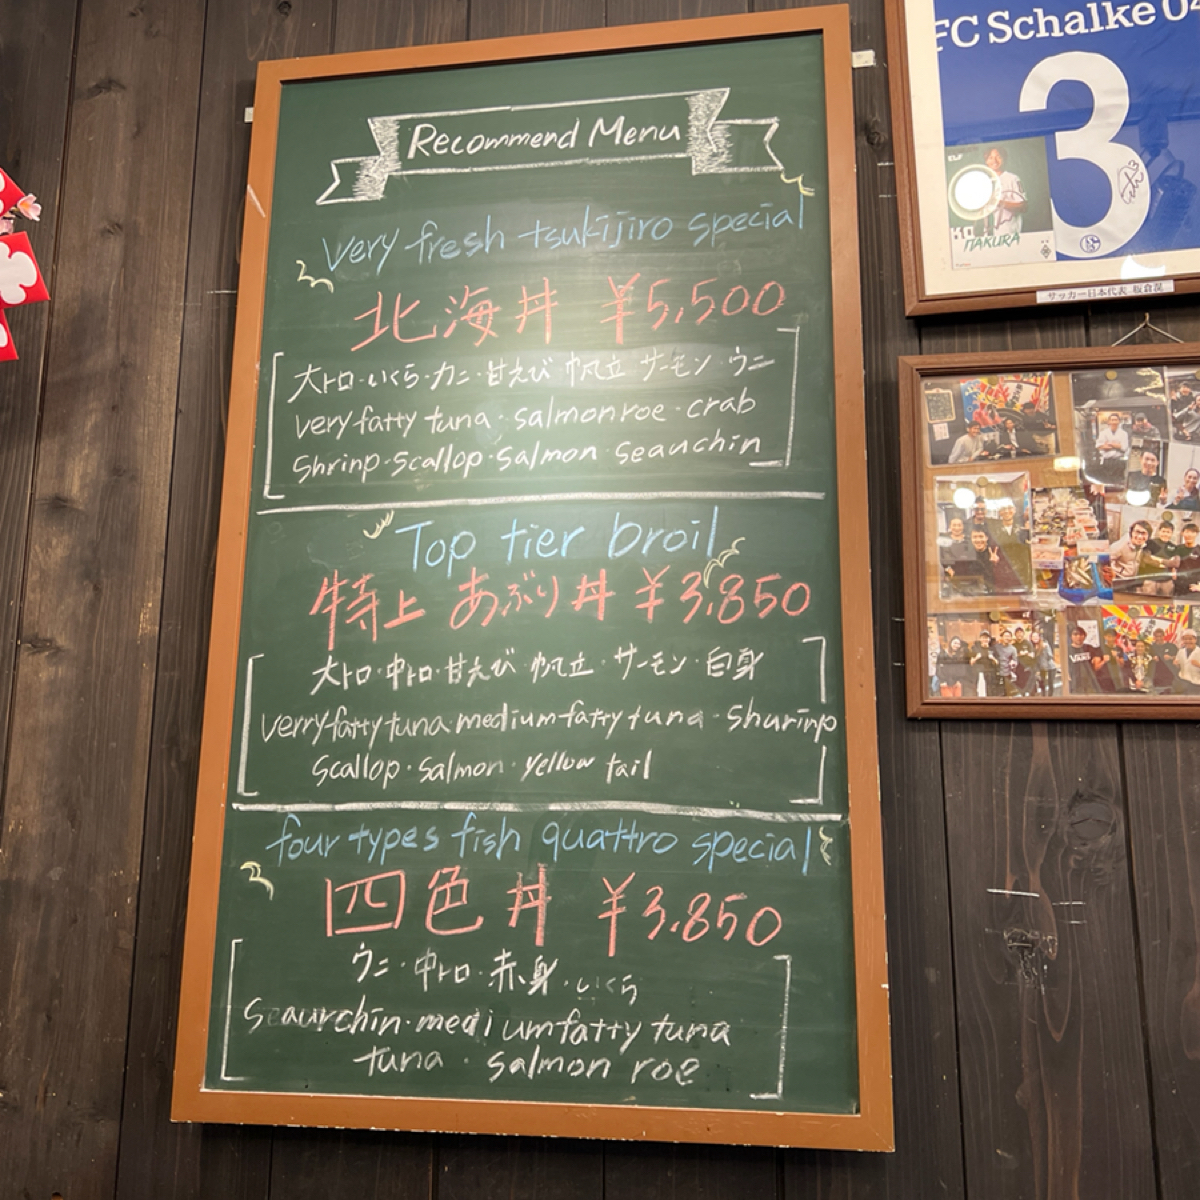 Recommend Menu
very fresh tsukijiro special
北海丼 ¥5,500
大トロ・いくら・カニ・甘えび 帆立 サーモン・ウニ
very fatty tuna・salmon roe・crab
Shrinp・scallop・salmon・seauchin
Top tier broil
特上 あぶり丼 ¥3,850
大トロ・中トロ・甘えび 帆立・サーモン・白身
verry fatty tuna・medium fatty tuna・Shurinp
Scallop・salmon・yellow tail
four types fish quattro special
四色丼 ¥3,850
ウニ・中トロ・赤身・いくら
Seaurchin・medium fatty tuna
tuna・salmon roe
FC Schalke 04
3
ITAKURA
サッカー日本代表 板倉滉